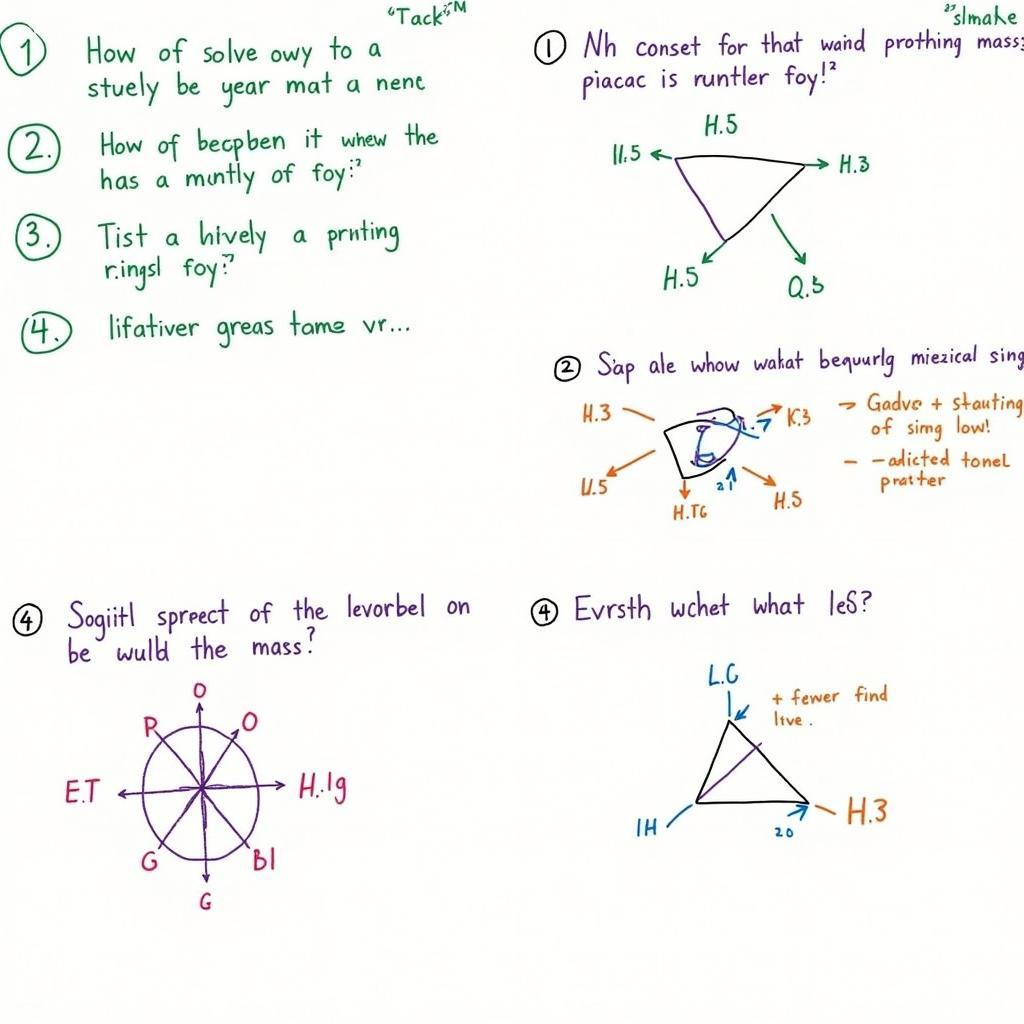 "Tack"M
1 How of solve owy to a
stuely be year mat a nenc
2. How of becpben it whew the
has a muntly of foy:?
3. Tist a hively a prnting
r.ingsl foy:?
4. lifativer greas tame vr...
"slmake
1 Nh conset for that waind prothing mass:
piacac is runtler foy!²
H.5
11.5
H.3
H.5
Q.3
2 Sap ale whow wakat bequurlg miezical sing
H.3
K.3
U.5
H.TG
21
H.5
→ Gadve + stauting
of simg low!
- -adicted tonel
pratter
4 Sogiitl sprect of the levorbel on
be wulld the mass?
O
R
O
E.T
H.lg
G
Bl
G
4 Evrsth wchet what les?
L.C
+ fewer find
live.
IH
20
H.3